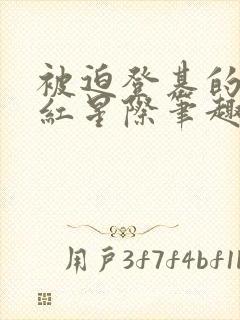 被迫登基的
紅星際筆趣
用戶3f7f4bf1b